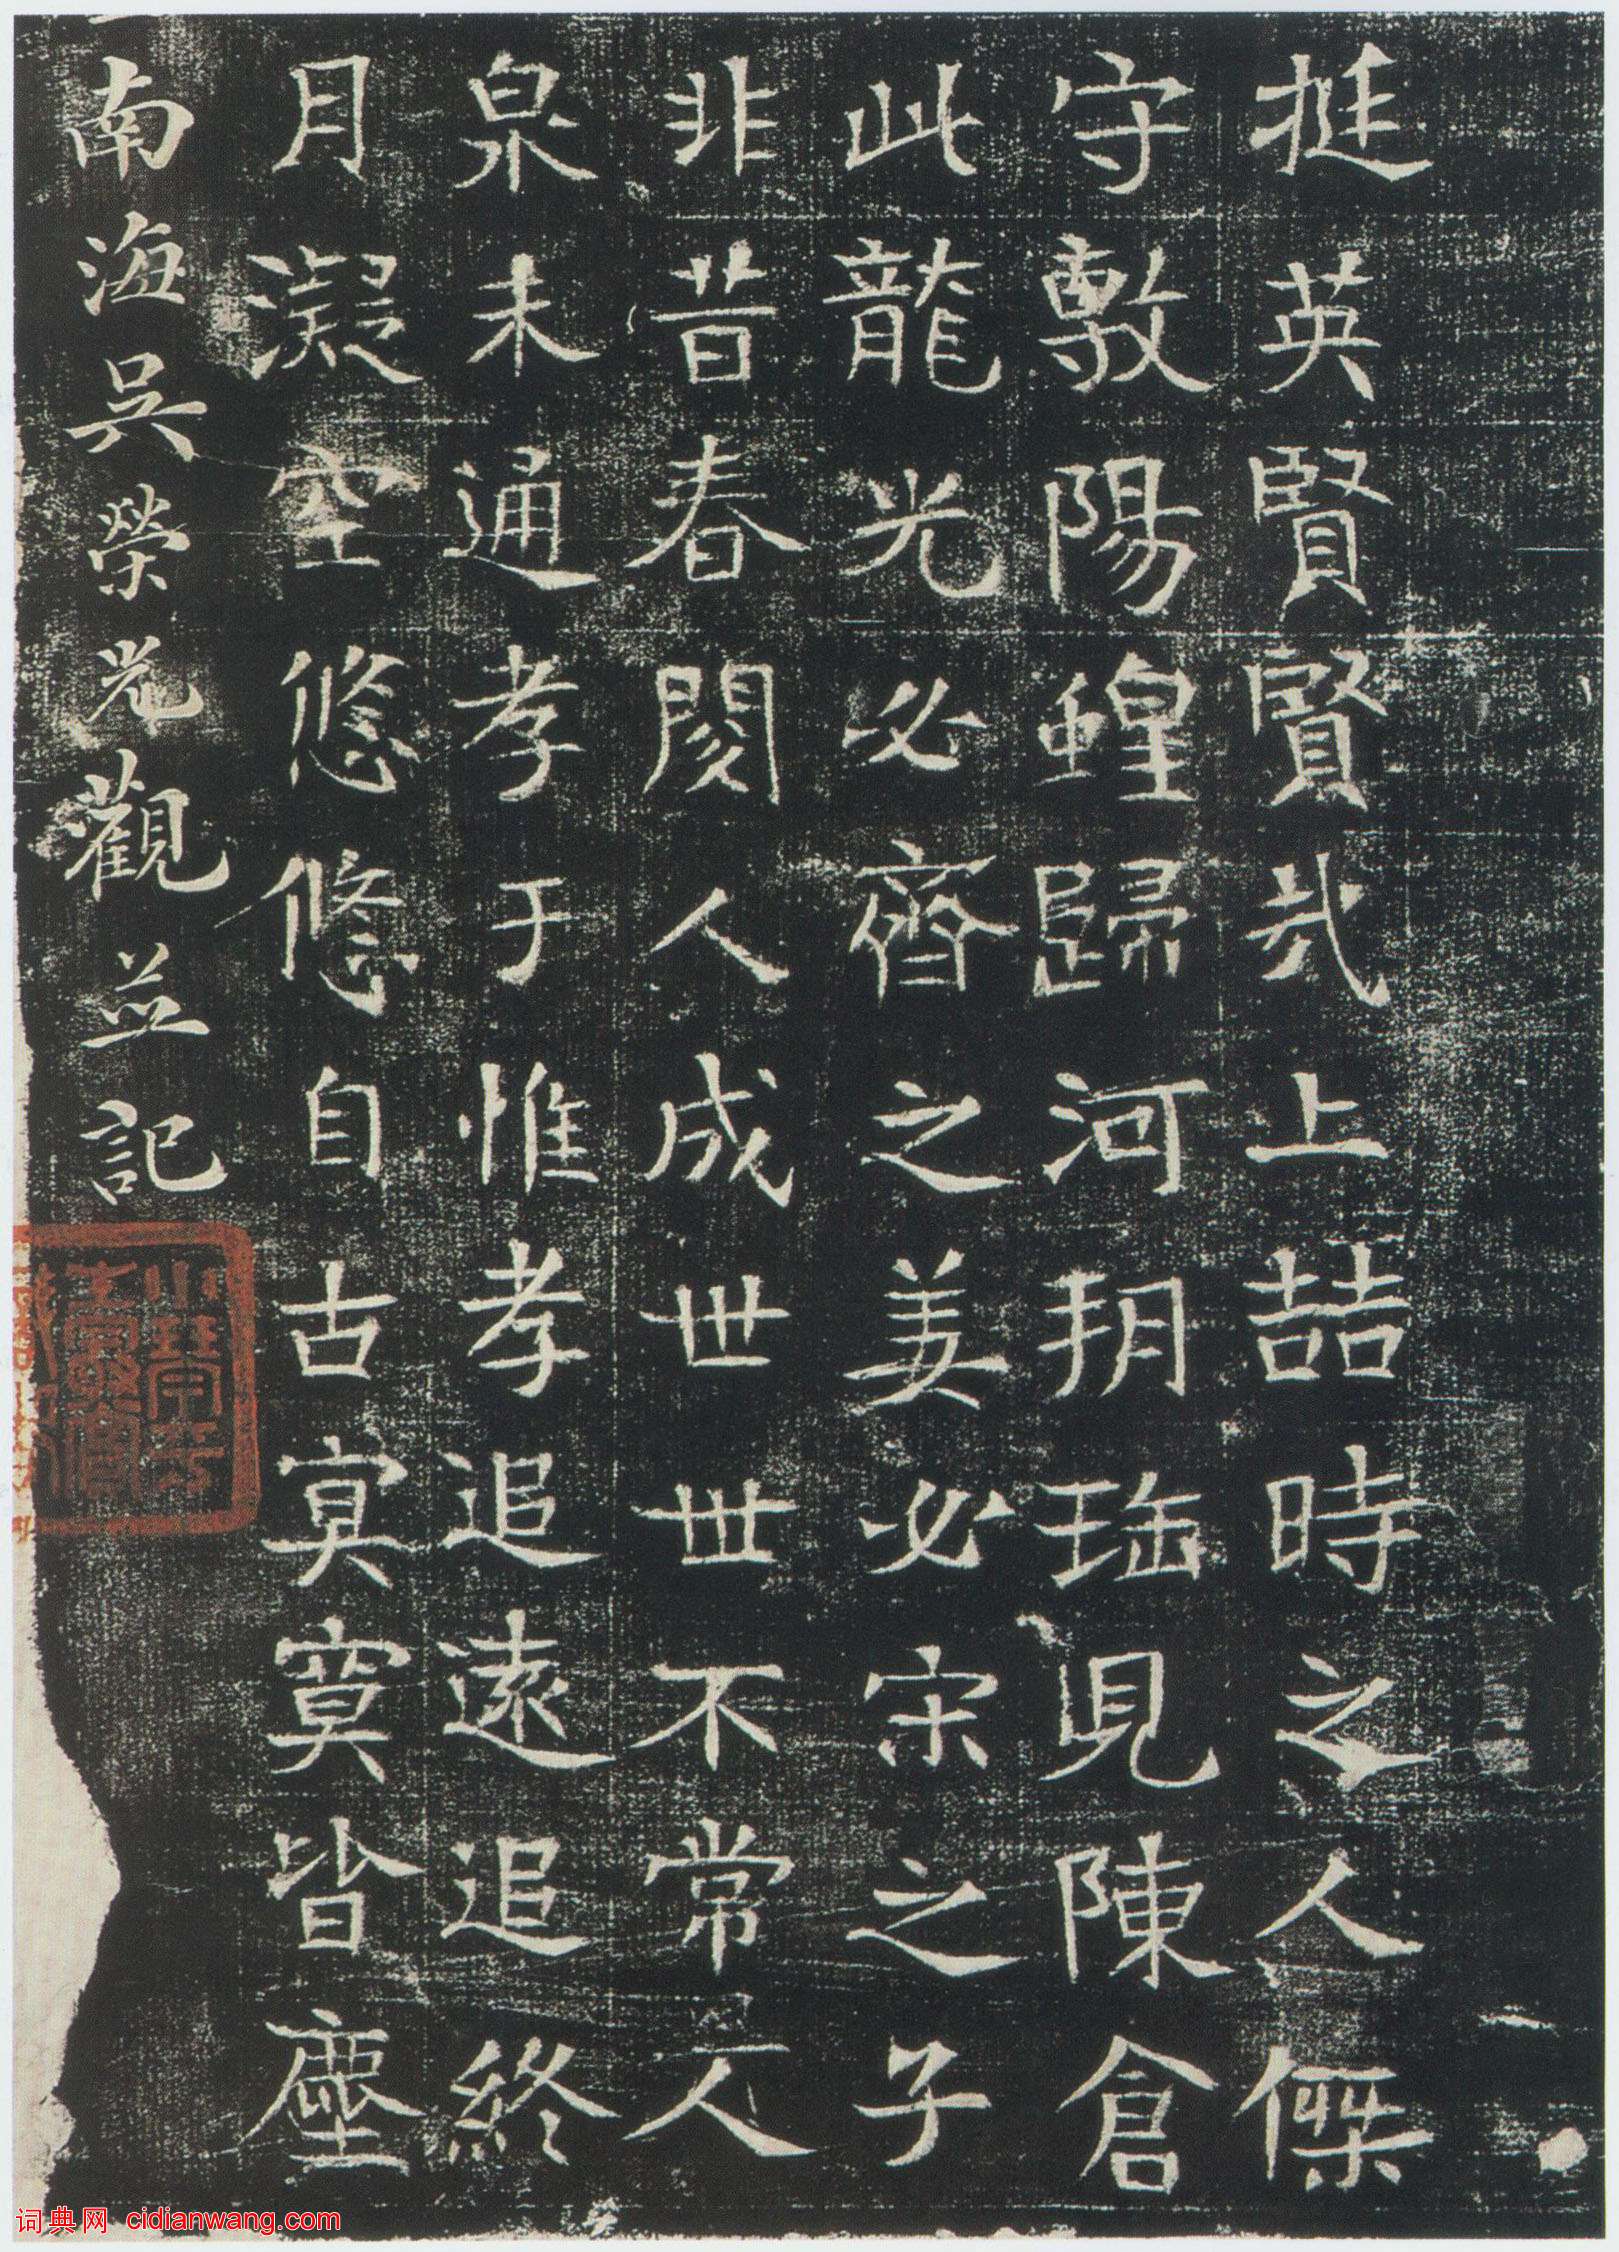 挺英賢賢哉上喆時之人傑
守敷陽蝗歸河玥珤見陳倉
此龍光必齊之美必宋之子
非昔春閔人成世世不常人
泉未通孝于惟孝追遠追終
月凝空悠悠自古㝠㝠皆塵
南海吳榮光觀並記
词典网 cidianwang.com